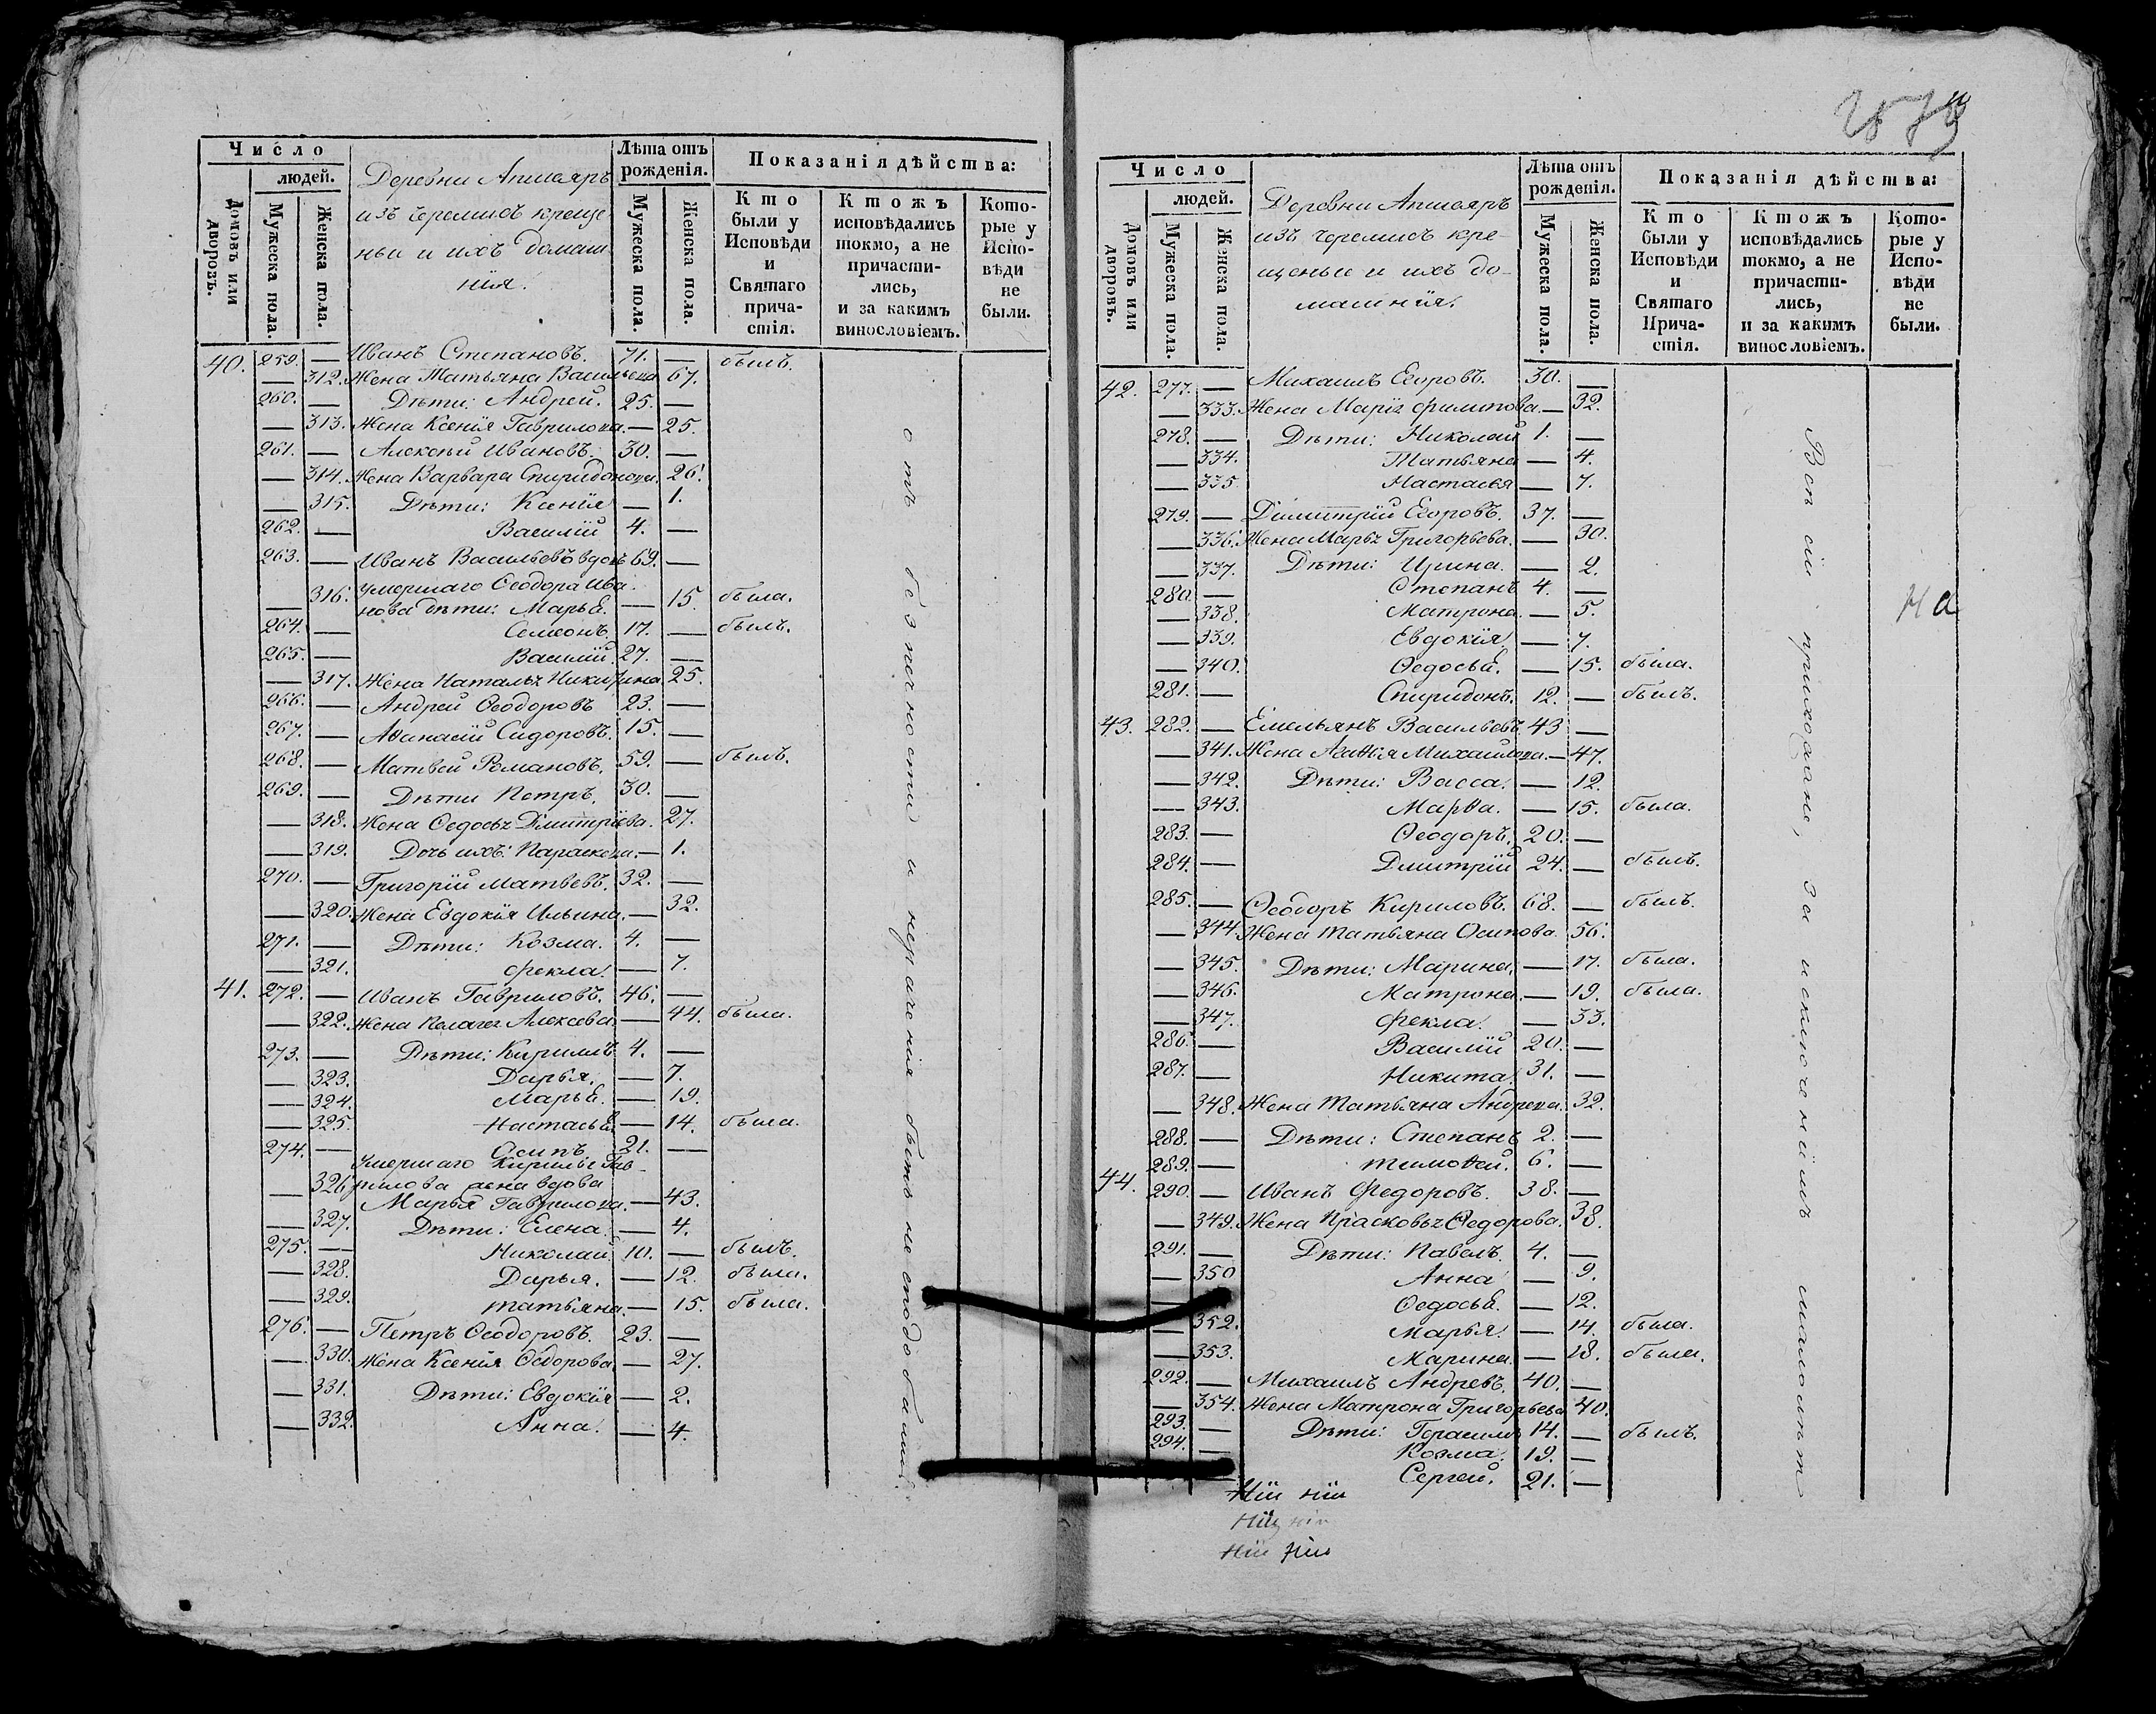 Число
людей.
Домовъ или дворовъ.
Мужеска пола.
Женска пола.
Деревни Апшаяръ
изъ черемисъ креще
ныи и ихъ домаш
нія.
Лѣта отъ рожденія.
Мужеска пола.
Женска пола.
Показанія дѣйства:
Кто были у Исповѣди и Святаго причастія.
Ктожъ исповѣдались токмо, а не причастились, и за какимъ винословіемъ.
Которые у Исповѣди не были.
40. 259. — Иванъ Степановъ. 71. — былъ.
— 312. Жена Татьяна Васильева 67.
260. — Дѣти: Андрей. 25. —
— 313. Жена Ксенія Гаврилова. — 25.
261. — Алексѣй Ивановъ. 30. —
— 314. Жена Варвара Спиридонова. 26.
— 315. Дѣти: Ксенія — 1.
262. — Василій 4. —
263. — Иванъ Васильевъ вдовъ 69. —
умершаго Ѳеодора Ива
— 316. нова дѣти: Марья. — 15. была.
264. — Семеонъ. 17. — былъ.
265. — Василій. 27. —
— 317. Жена Наталья Никитина. 25.
266. — Андрей Ѳеодоровъ 23. —
267. — Аѳанасій Сидоровъ. 15. —
268. — Матвей Романовъ. 59. — былъ.
269. — Дѣти Петръ. 30. —
— 318. Жена Ѳедосья Дмитріева. 27.
— 319. Дочь ихъ: Параскева. — 1.
270. — Григорій Матвѣевъ. 32. —
— 320. Жена Евдокія Ильина. — 32.
271. — Дѣти: Козма. 4. —
— 321. Фекла. — 7.
41. 272. — Иванъ Гавриловъ. 46. —
— 322. Жена Пелагея Алексѣева — 44. была.
273. — Дѣти: Кирилъ 4. —
— 323. Дарья. — 7.
— 324. Марья. — 19.
— 325. Настасья — 14. была.
274. — Осипъ 21. —
Умершаго Кирилы Гав-
— 326. рилова жена вдова
Марья Гаврилова. — 43.
— 327. Дѣти: Елена. — 4.
275. — Николай 10. — былъ.
— 328. Дарья. — 12. была.
— 329. Татьяна. — 15. была.
276. — Петръ Ѳеодоровъ. 23. —
— 330. Жена Ксенія Ѳедорова — 27.
— 331. Дѣти: Евдокія — 2.
— 332. Анна. — 4.
Число
людей.
Домовъ или дворовъ.
Мужеска пола.
Женска пола.
Деревни Апшаяръ
изъ черемисъ кре-
щеныи и ихъ до-
машнія.
Лѣта отъ рожденія.
Мужеска пола.
Женска пола.
Показанія дѣйства:
Кто были у Исповѣди и Святаго Причастія.
Ктожъ исповѣдались токмо, а не причастились, и за какимъ винословіемъ.
Которые у Исповѣди не были.
42. 277. — Михаилъ Егоровъ. 30. —
— 333. Жена Марія Филипова. — 32.
278. — Дѣти: Николай 1. —
— 334. Татьяна — 4.
— 335 Настасья — 7.
279. — Димитрій Егоровъ. 37. —
— 336. Жена Марья Григорьева. — 30.
— 337. Дѣти: Ирина. — 2.
280. — Степанъ 4. —
— 338. Матрона. — 5.
— 339. Евдокія — 7.
— 340. Ѳедосья. — 15. была.
281. — Спиридонъ. 12. — былъ.
43. 282. — Емельянъ Васильевъ 43 —
— 341. Жена Агаѳія Михайлова. — 47.
— 342. Дѣти: Васса. — 12.
— 343. Марѳа. — 15. была.
283. — Ѳеодоръ. 20. —
284. — Дмитрій 24. — былъ.
285. — Ѳеодоръ Кириловъ. 68. — былъ.
— 344. Жена Татьяна Осипова. 56.
— 345. Дѣти: Марина. — 17. была.
— 346. Матрона. — 19. была.
— 347. Фекла. — 33.
286. — Василій 20. —
287. — Никита. 31. —
— 348. Жена Татьяна Андреева. 32.
288. — Дѣти: Степанъ 2. —
289. — Тимоѳей. 6. —
44. 290. — Иванъ Федоровъ. 38. —
— 349. Жена Прасковья Ѳедорова. 38.
291. — Дѣти: Павелъ. 4. —
— 350 Анна — 9.
Ѳедосья. — 12.
— 352. Марья. — 14. была.
— 353. Марина. — 18. была.
292. — Михаилъ Андревъ. 40. —
— 354. Жена Матрона Григорьева 40.
293. — Дѣти: Герасимъ 14. — былъ.
294. — Козма. 19. —
— Сергей. 21. —
Всѣ сіи прихожане, за исключеніемъ малолѣт
отъ безпечности и нераченія быть не сподобились.
На
ніи ніи
ніи
ніи ніи